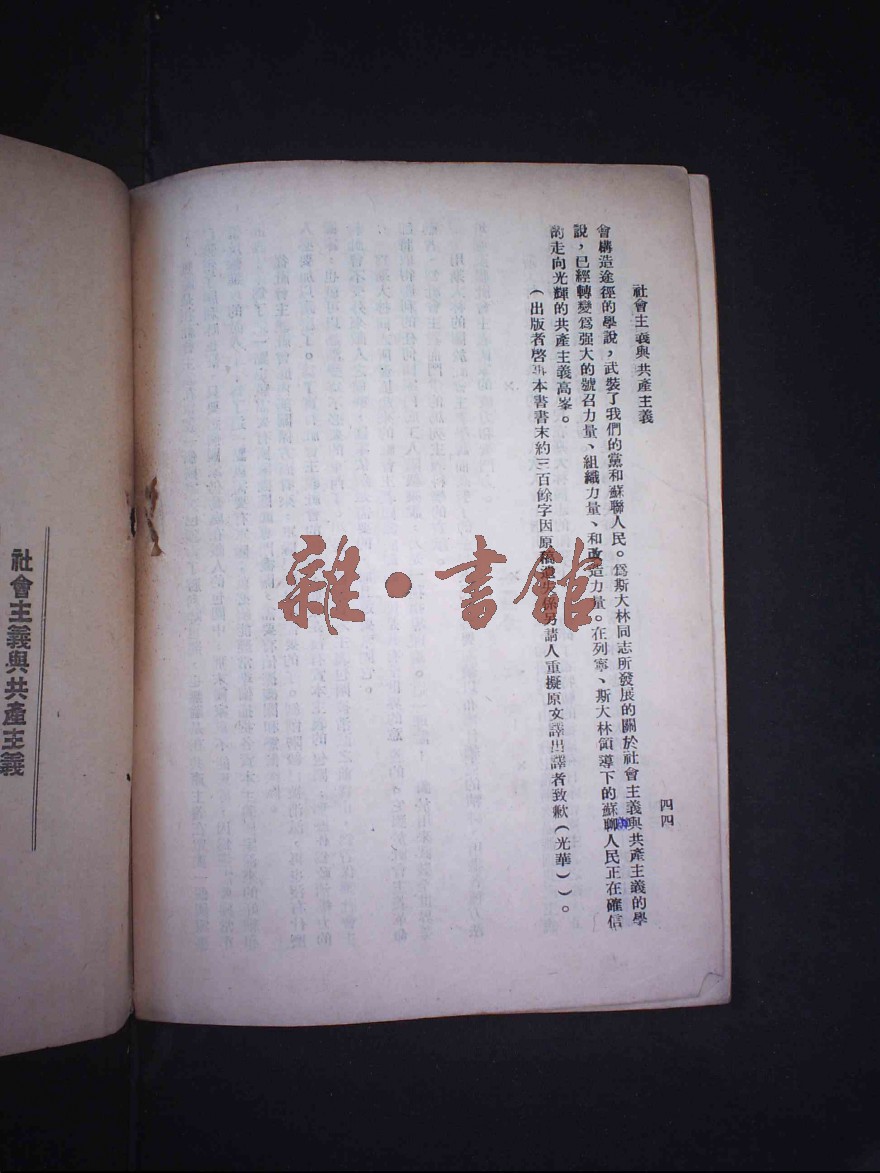 社會主義與共產主義
四四
會構造途徑的學說，武裝了我們的黨和蘇聯人民。爲斯大林同志所發展的關於社會主義與共產主義的學
說，已經轉變爲强大的號召力量、組織力量、和改造力量。在列寧、斯大林領導下的蘇聯人民正在確信
的走向光輝的共產主義高峯。
（出版者啓事本書書末約三百餘字因原稿遺失係另請人重擬原文譯出譯者致歉（光華））。
社會主義與共產主義
雜·書館